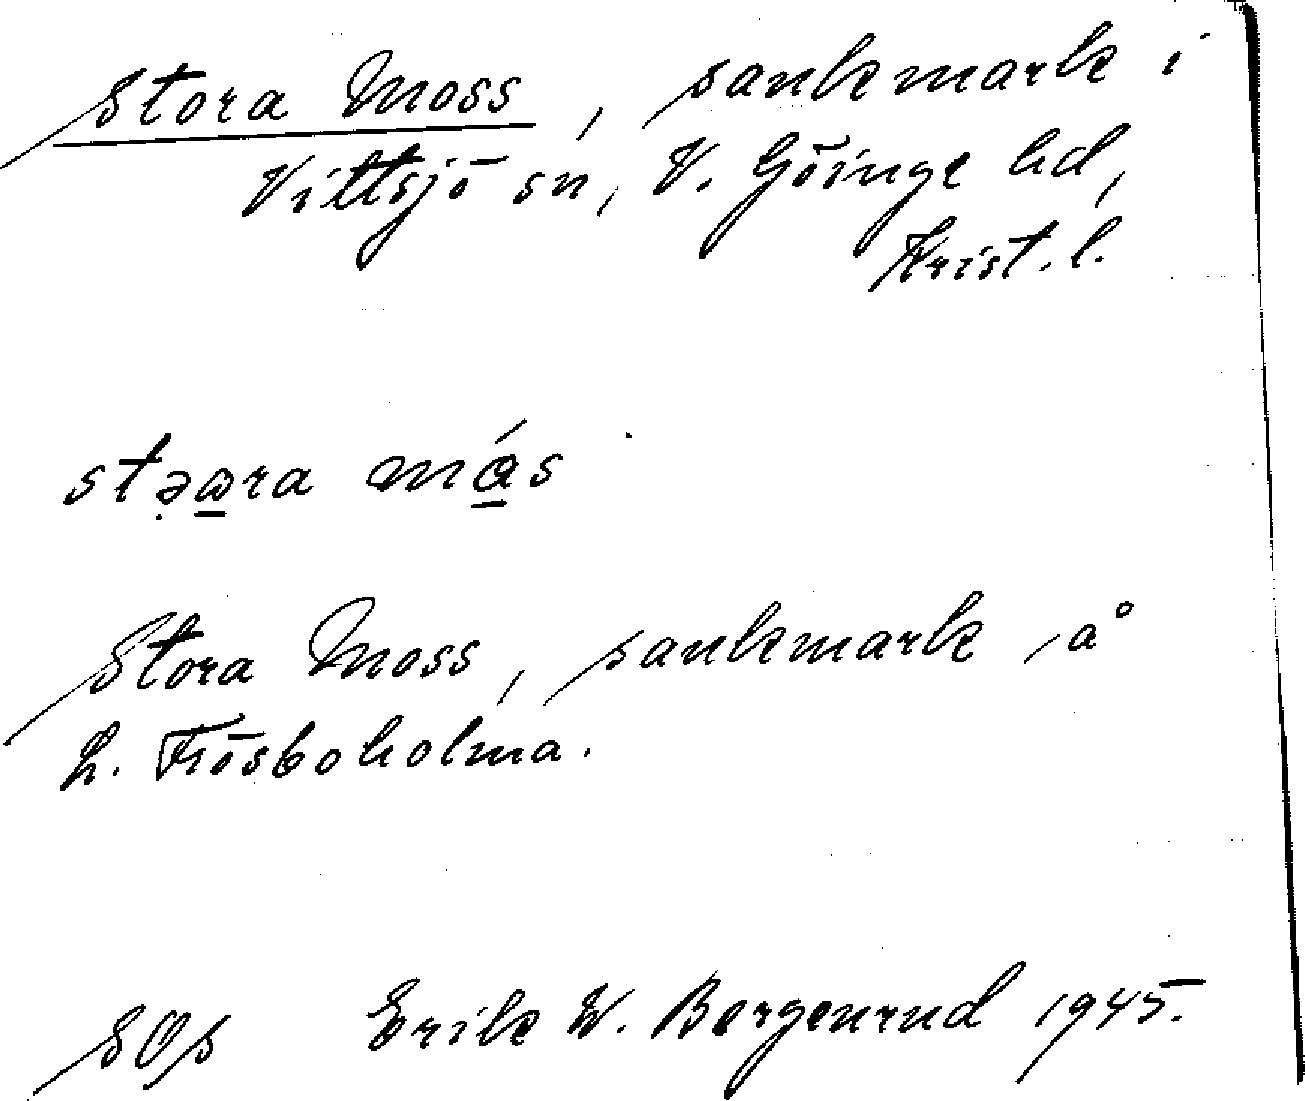 Stora Moss, sankmark i
Vittsjö sn, V. Göinge hd,
Krist. l.
stəɷra mås
Stora Moss, sankmark å
L. Frösboholma.
SOS Erik W. Bergenrud 1945.